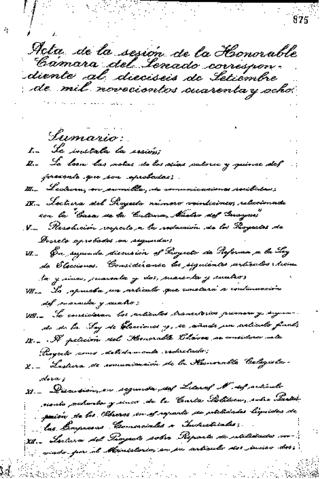 875
Acta de la sesión de la Honorable
Cámara del Senado correspon-
diente al dieciseis de Setiembre
de mil novecientos cuarenta y ocho.
Sumario:
I.- Se instala la sesión;
II.- Se leen las actas de los días catorce y quince del
presente que son aprobadas;
III.- Lectura, en sumilla, de comunicaciones recibidas;
IV.- Lectura del Proyecto número veinticinco, relacionado
con la Casa de la Cultura, Núcleo del Guayas;
V.- Resolución respecto a la redacción de los Proyectos de
Decreto aprobados en segunda;
VI.- En segunda discusión el Proyecto de Reforma a la Ley
de Elecciones. Considéranse los siguientes artículos: trein-
ta y cinco, cuarenta y dos, cuarenta y cuatro;
VII.- Se aprueba un artículo que constará a continuación
del cuarenta y cuatro;
VIII.- Se consideran los artículos transitorios primero y segun-
do de la Ley de Elecciones y, se añade un artículo final;
IX.- A petición del Honorable Chávez se considera este
Proyecto como debidamente redactado;
X.- Lectura de comunicación de la Honorable Colegisla-
dora;
XI.- Discusión, en segunda, del Literal N. del artículo
ciento ochenta y cinco de la Carta Política, sobre Partici-
pación de los Obreros en el reparto de utilidades líquidas de
las Empresas Comerciales e Industriales;
XII.- Lectura del Proyecto sobre Reparto de utilidades en-
viado por el Ministerio en su artículo dos, inciso dos;